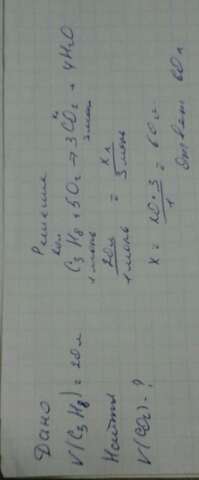 Дано
V(C₃H₈) = 20 л
Найти
V(CO₂) - ?
Решение
20л хл
C₃H₈ + 5O₂ → 3CO₂ + 4H₂O
1 моль 3 моль
20л / 1 моль = х л / 3 моль
x = 20·3 / 1 = 60 л
Ответ 60 л